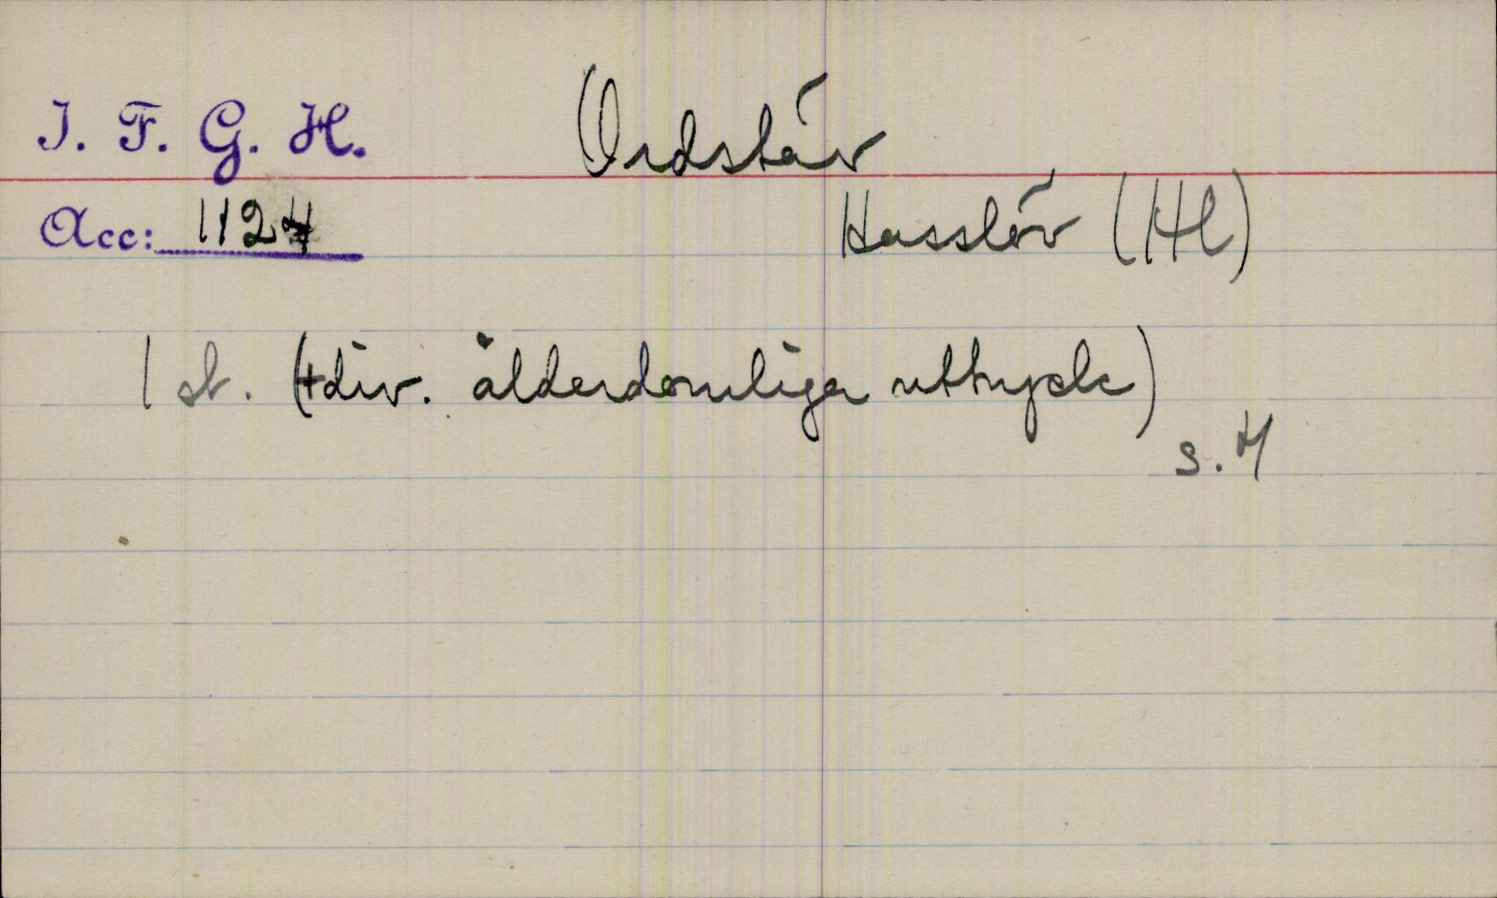 I. F. G. H.
Ordstäv
Acc: 1124
Hasslöv (Hl)
1 st. (+div. ålderdomliga uttryck)
s. 4